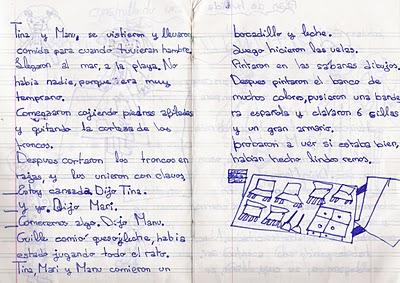 Tina y Manu, se vistieron y llevaron
comida para cuando tuvieran hambre.
Llegaron al mar, a la playa. No
había nadie, porque era muy
temprano.
Comenzaron cojiendo piedras afiladas
y quitando la corteza de los
troncos.
Despues cortaron los troncos en
rajas y los unieron con clavos
_Estoy cansada. Dijo Tina.
_Y yo. Dijo Mari.
_Comeremos algo. Dijo Manu.
Guille comió queso y leche, había
estado jugando todo el rato.
Tina, Mari y Manu comieron un
bocadillo y leche.
Luego hicieron las velas.
Pintaron en las sabanas dibujos.
Despues pintaron el banco de
muchos colores, pusieron una bande
ra española y clavaron 6 sillas
y un gran armario.
Probaron a ver si estaba bien,
habían hecho lindos remos.